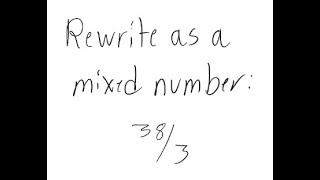 Rewrite as a
mixed number:
38/3